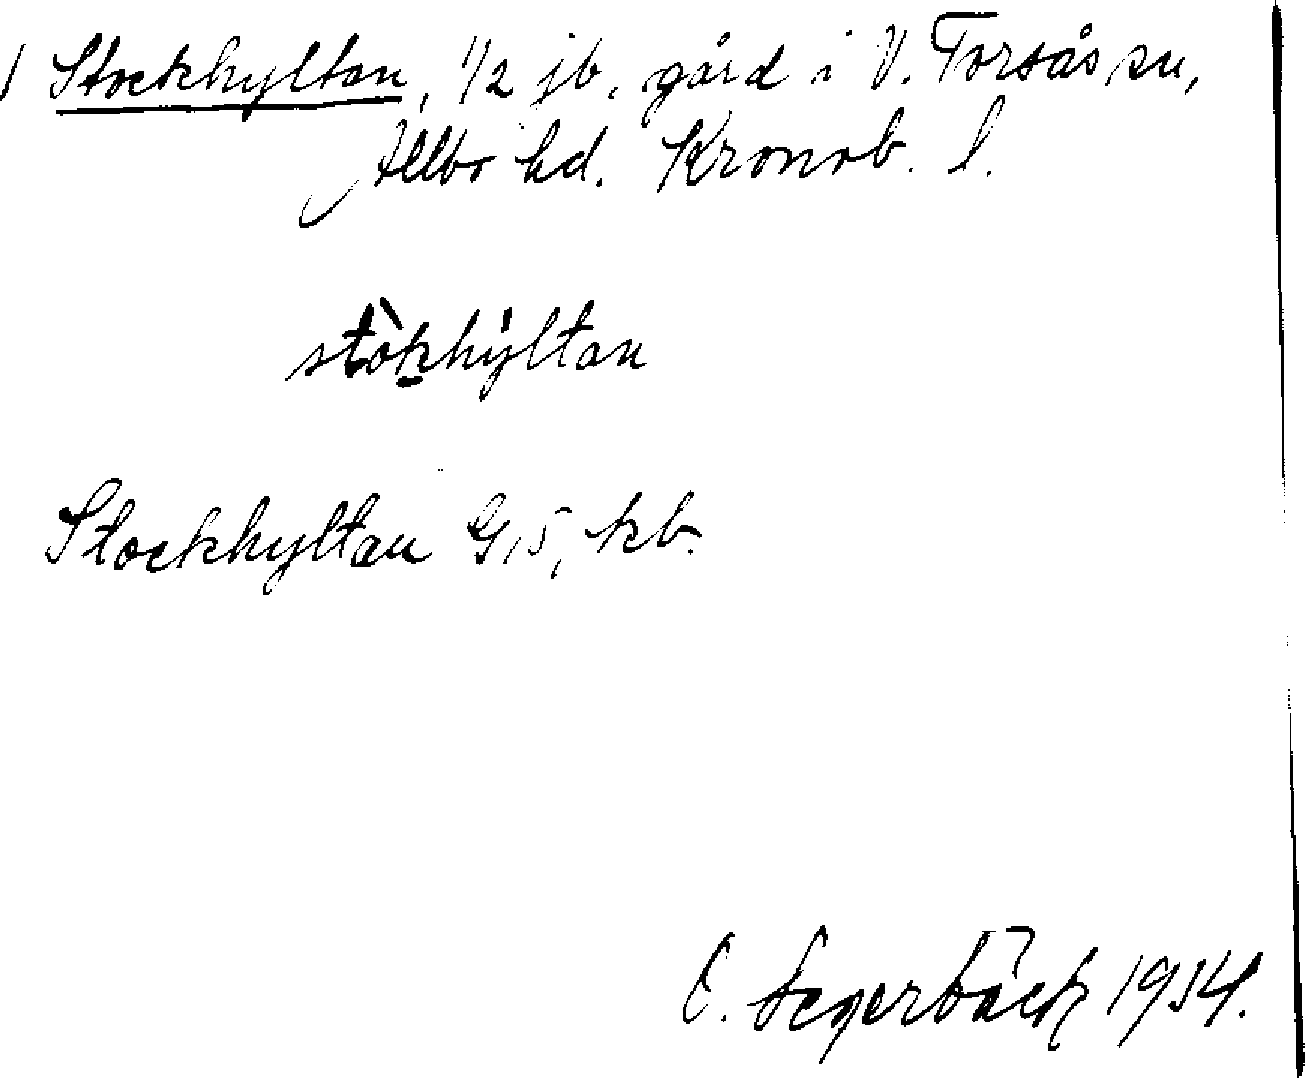 Stockhyltan, 1/2 jb. gård i V. Torsås sn,
Allbo hd. Kronob. l.
stòkhýltan
Stockhyltan G, 5, kb.
E. Segerbäck 1934.